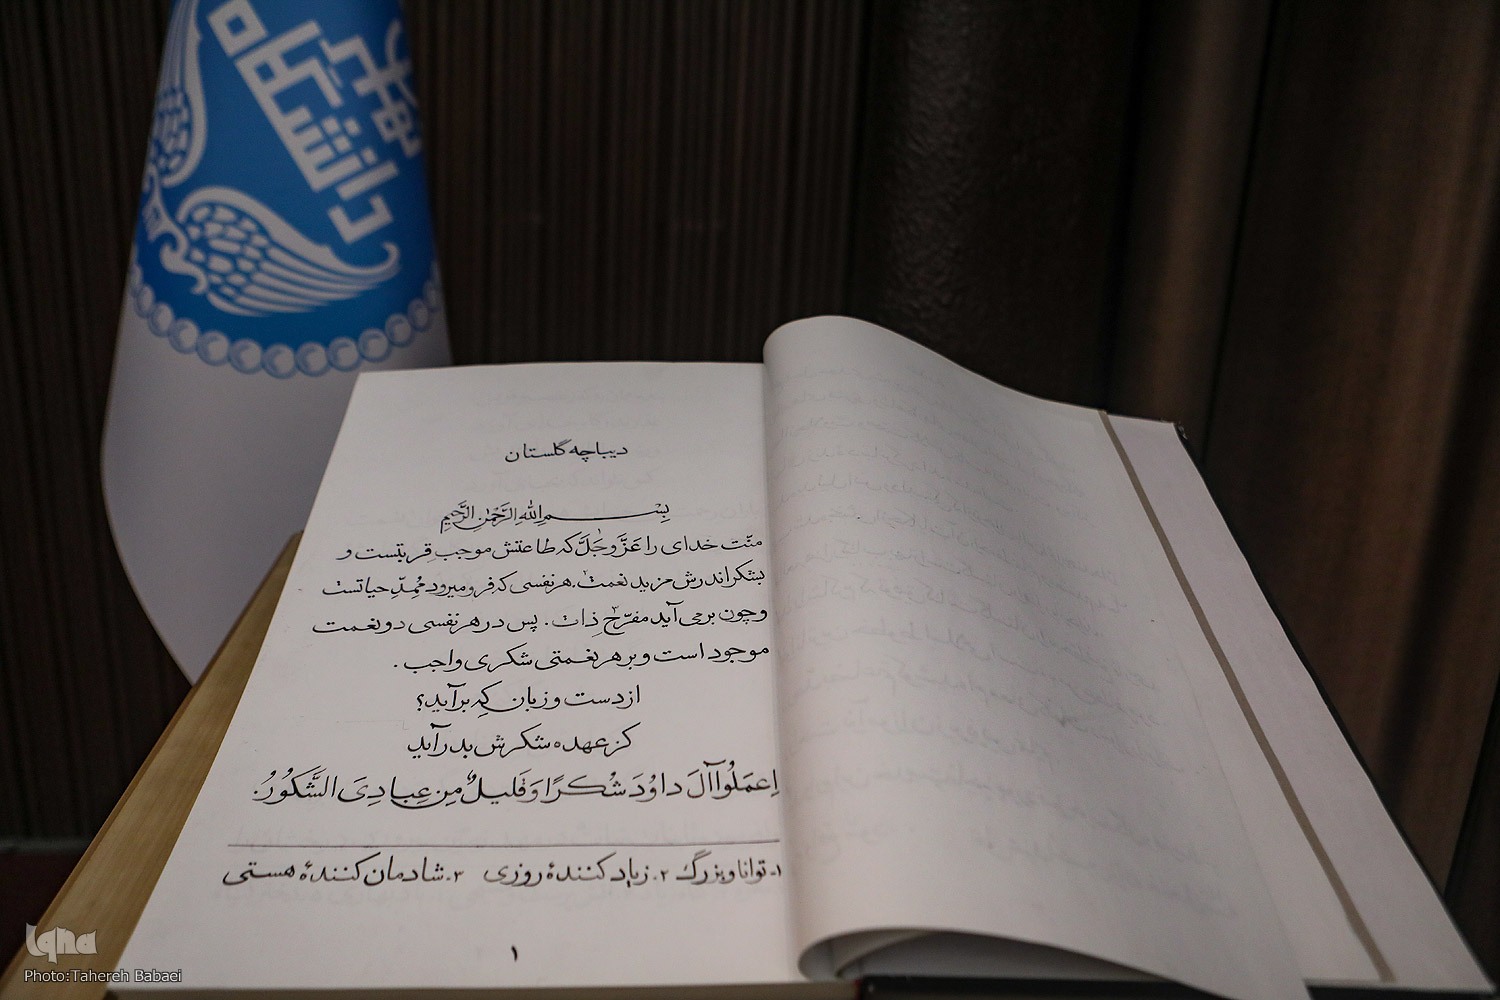 دانشگاه
تهران
دیباچه گلستان
بِسْمِ اللهِ الرَّحْمٰنِ الرَّحیمِ
منّت خدای را عَزَّ وجَلَّ که طاعتش موجب قربتست و
بشکر اندرش مزید نعمت، هر نفسی که فرو میرود مُمِدّ حیاتست
و چون برمی آید مفرّح ذات. پس در هر نفسی دو نعمت
موجود است و بر هر نعمتی شکری واجب.
از دست و زبان که برآید؟
کز عهده شکرش بدرآید
اِعمَلُوا آلَ داوُدَ شُکرًا وَ قَلیلٌ مِن عِبادِیَ الشَّکُورُ.
۱- توانا و بزرگ ۲- زیاد کنندهٔ روزی ۳- شادمان کنندهٔ هستی
۱
iqna
Photo:Tahereh Babaei